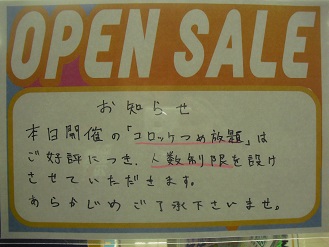 OPEN SALE
お知らせ
本日開催の「コロッケつめ放題」は
ご好評につき、人数制限を設け
させていただきます。
あらかじめご了承下さいませ。